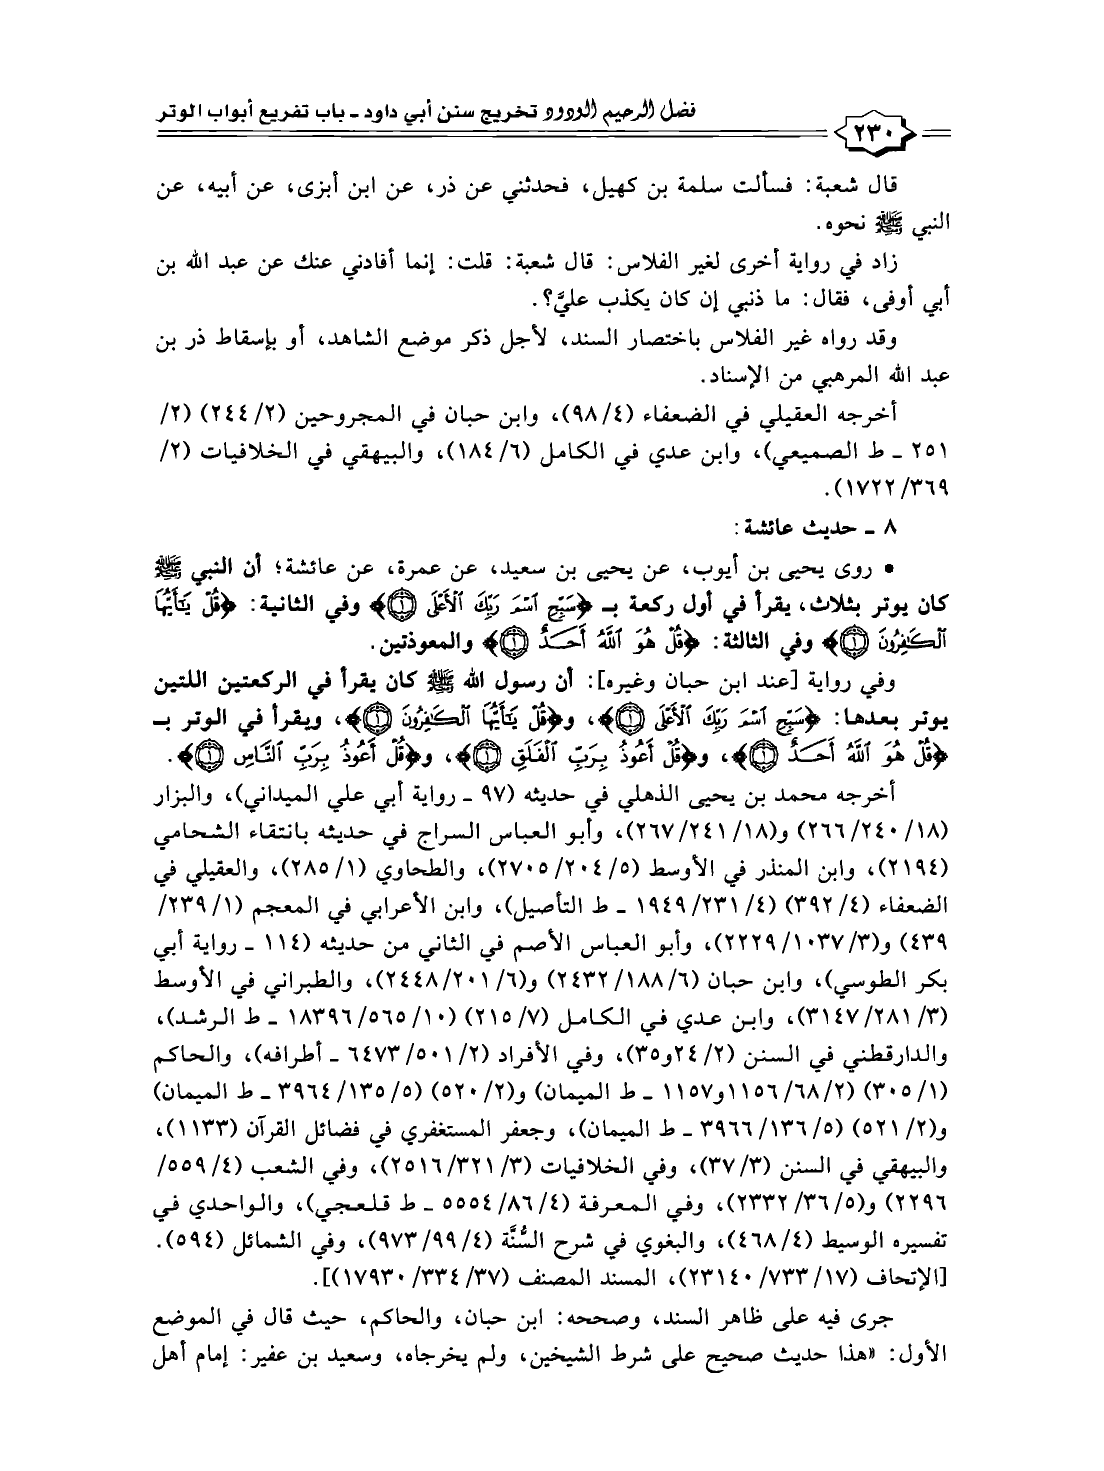 فضل الرحيم الودود تخريج سنن أبي داود ـ باب تفريع أبواب الوتر
٢٣٠
قال شعبة: فسألت سلمة بن كهيل، فحدثني عن ذر، عن ابن أبزى، عن أبيه، عن
النبي ﷺ نحوه.
زاد في رواية أخرى لغير الفلاس: قال شعبة: قلت: إنما أفادني عنك عن عبد الله بن
أبي أوفى، فقال: ما ذنبي إن كان يكذب عليَّ؟.
وقد رواه غير الفلاس باختصار السند، لأجل ذكر موضع الشاهد، أو بإسقاط ذر بن
عبد الله المرهبي من الإسناد.
أخرجه العقيلي في الضعفاء (٤/ ٩٨)، وابن حبان في المجروحين (٢/ ٢٤٤) (٢/
٢٥١ ـ ط الصميعي)، وابن عدي في الكامل (٦/ ١٨٤)، والبيهقي في الخلافيات (٢/
٣٦٩/ ١٧٢٢).
٨ ـ حديث عائشة:
• روى يحيى بن أيوب، عن يحيى بن سعيد، عن عمرة، عن عائشة؛ أن النبي ﷺ
كان يوتر بثلاث، يقرأ في أول ركعة بـ ﴿سَبِّحِ اسْمَ رَبِّكَ الْأَعْلَى ۝١﴾ وفي الثانية: ﴿قُلْ يَٰٓأَيُّهَا
الْكَٰفِرُونَ ۝١﴾ وفي الثالثة: ﴿قُلْ هُوَ اللَّهُ أَحَدٌ ۝١﴾ والمعوذتين.
وفي رواية [عند ابن حبان وغيره]: أن رسول الله ﷺ كان يقرأ في الركعتين اللتين
يوتر بعدها: ﴿سَبِّحِ اسْمَ رَبِّكَ الْأَعْلَى ۝١﴾، و﴿قُلْ يَٰٓأَيُّهَا الْكَٰفِرُونَ ۝١﴾، ويقرأ في الوتر بـ
﴿قُلْ هُوَ اللَّهُ أَحَدٌ ۝١﴾، و﴿قُلْ أَعُوذُ بِرَبِّ الْفَلَقِ ۝١﴾، و﴿قُلْ أَعُوذُ بِرَبِّ النَّاسِ ۝١﴾.
أخرجه محمد بن يحيى الذهلي في حديثه (٩٧ ـ رواية أبي علي الميداني)، والبزار
(١٨/ ٢٤٠/ ٢٦٦) و(١٨/ ٢٤١/ ٢٦٧)، وأبو العباس السراج في حديثه بانتقاء الشحامي
(٢١٩٤)، وابن المنذر في الأوسط (٥/ ٢٠٤/ ٢٧٠٥)، والطحاوي (١/ ٢٨٥)، والعقيلي في
الضعفاء (٤/ ٣٩٢) (٤/ ٢٣١/ ١٩٤٩ ـ ط التأصيل)، وابن الأعرابي في المعجم (١/ ٢٣٩/
٤٣٩) و(٣/ ١٠٣٧/ ٢٢٢٩)، وأبو العباس الأصم في الثاني من حديثه (١١٤ ـ رواية أبي
بكر الطوسي)، وابن حبان (٦/ ١٨٨/ ٢٤٣٢) و(٦/ ٢٠١/ ٢٤٤٨)، والطبراني في الأوسط
(٣/ ٢٨١/ ٣١٤٧)، وابن عدي في الكامل (٧/ ٢١٥) (١٠/ ٥٦٥/ ١٨٣٩٦ ـ ط الرشد)،
والدارقطني في السنن (٢/ ٢٤و٣٥)، وفي الأفراد (٢/ ٥٠١/ ٦٤٧٣ ـ أطرافه)، والحاكم
(١/ ٣٠٥) (٢/ ٦٨/ ١١٥٦و١١٥٧ ـ ط الميمان) و(٢/ ٥٢٠) (٥/ ١٣٥/ ٣٩٦٤ ـ ط الميمان)
و(٢/ ٥٢١) (٥/ ١٣٦/ ٣٩٦٦ ـ ط الميمان)، وجعفر المستغفري في فضائل القرآن (١١٣٣)،
والبيهقي في السنن (٣/ ٣٧)، وفي الخلافيات (٣/ ٣٢١/ ٢٥١٦)، وفي الشعب (٤/ ٥٥٩/
٢٢٩٦) و(٥/ ٣٦/ ٢٣٣٢)، وفي المعرفة (٤/ ٨٦/ ٥٥٥٤ ـ ط قلعجي)، والواحدي في
تفسيره الوسيط (٤/ ٤٦٨)، والبغوي في شرح السُّنَّة (٤/ ٩٩/ ٩٧٣)، وفي الشمائل (٥٩٤).
[الإتحاف (١٧/ ٧٣٣/ ٢٣١٤٠)، المسند المصنف (٣٧/ ٣٣٤/ ١٧٩٣٠)].
جرى فيه على ظاهر السند، وصححه: ابن حبان، والحاكم، حيث قال في الموضع
الأول: «هذا حديث صحيح على شرط الشيخين، ولم يخرجاه، وسعيد بن عفير: إمام أهل